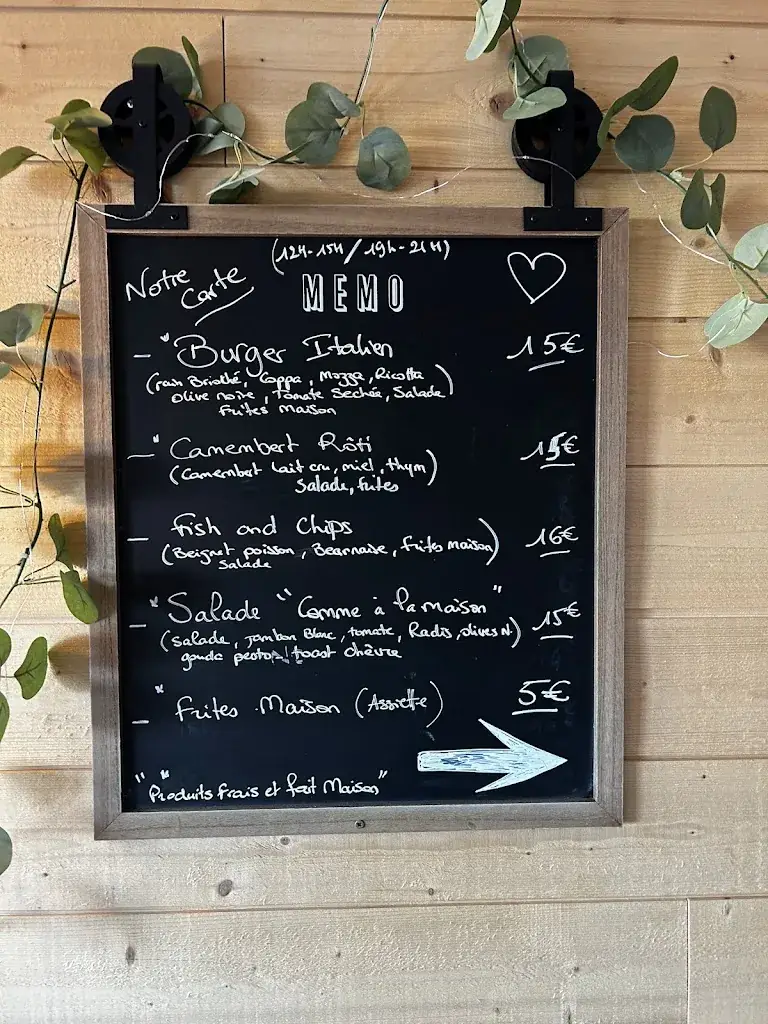 (12H-15H / 19h-21H)
Notre Carte
MEMO
- * Burger Italien 15€
(pain Brioché, Coppa, Mozza, Ricotta
Olive noire, Tomate Sechée, Salade
Frites Maison
- * Camembert Rôti 15€
(Camembert lait cru, miel, thym)
Salade, frites
- Fish and Chips 16€
(Beignet poisson, Bearnaise, frites maison)
Salade
- * Salade "Comme à la maison" 15€
(Salade, Jambon Blanc, tomate, Radis, olives N.)
gouda pesto, toast chèvre
- * Frites Maison (Assiette) 5€
"* Produits frais et fait Maison"